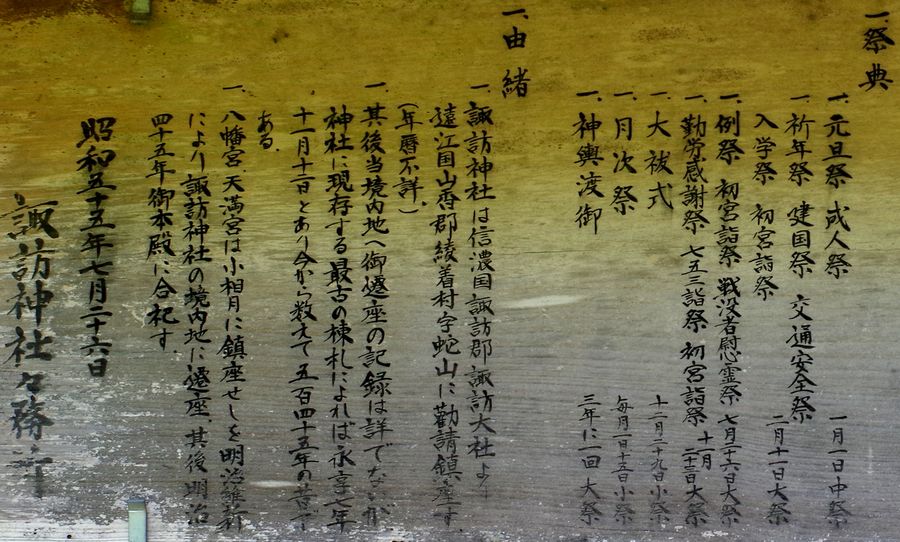 一、祭典
一、元旦祭 成人祭 一月一日中祭
一、祈年祭 建国祭 交通安全祭
入学祭 初宮詣祭 二月十一日大祭
一、例祭 初宮詣祭 戦没者慰霊祭 七月二十六日大祭
一、勤労感謝祭 七五三詣祭 初宮詣祭 十一月二十三日大祭
一、大祓式 十二月二十九日小祭
一、月次祭 毎月一日十五日小祭
一、神輿渡御 三年に一回大祭
一、由緒
一、諏訪神社は信濃国諏訪郡諏訪大社より
遠江国山香郡綾着村字蛇山に勧請鎮座す
(年暦不詳。)
一、其後当境内地へ御遷座の記録は詳でないが
神社に現存する最古の棟札によれば永享七年
十一月十三日とあり今から数えて五百四十五年の昔で
ある。
一、八幡宮、天満宮は小相月に鎮座せしを明治維新
により諏訪神社の境内地に遷座、其後明治
四十五年御本殿に合祀す。
昭和五十五年七月二十六日
諏訪神社々務所